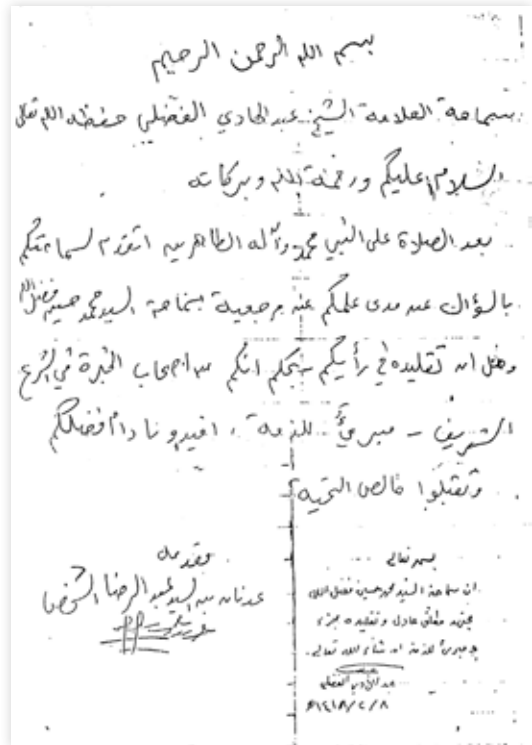 بسم الله الرحمن الرحيم
سماحة العلامة الشيخ عبد الهادي الفضلي حفظه الله تعالى
السلام عليكم ورحمة الله وبركاته
بعد الصلاة على النبي محمد وآله الطاهرين اتقدم لسماحتكم
بالسؤال عن مدى علمكم عن مرجعية سماحة السيد محمد حسين فضل الله
وهل ان تقليده في رأيكم بحكم انكم من اصحاب الخبرة في الشرع
الشريف - مبرئ للذمة، افيدونا دام فضلكم
وتقبلوا خالص التحية
مقدمه
عدنان السيد عبد الرضا الشخص
بسمه تعالى
ان سماحة السيد محمد حسين فضل الله
مجتهد مطلق عادل وتقليده مجزء
ومبرئ للذمة ان شاء الله تعالى.
عبد الهادي الفضلي